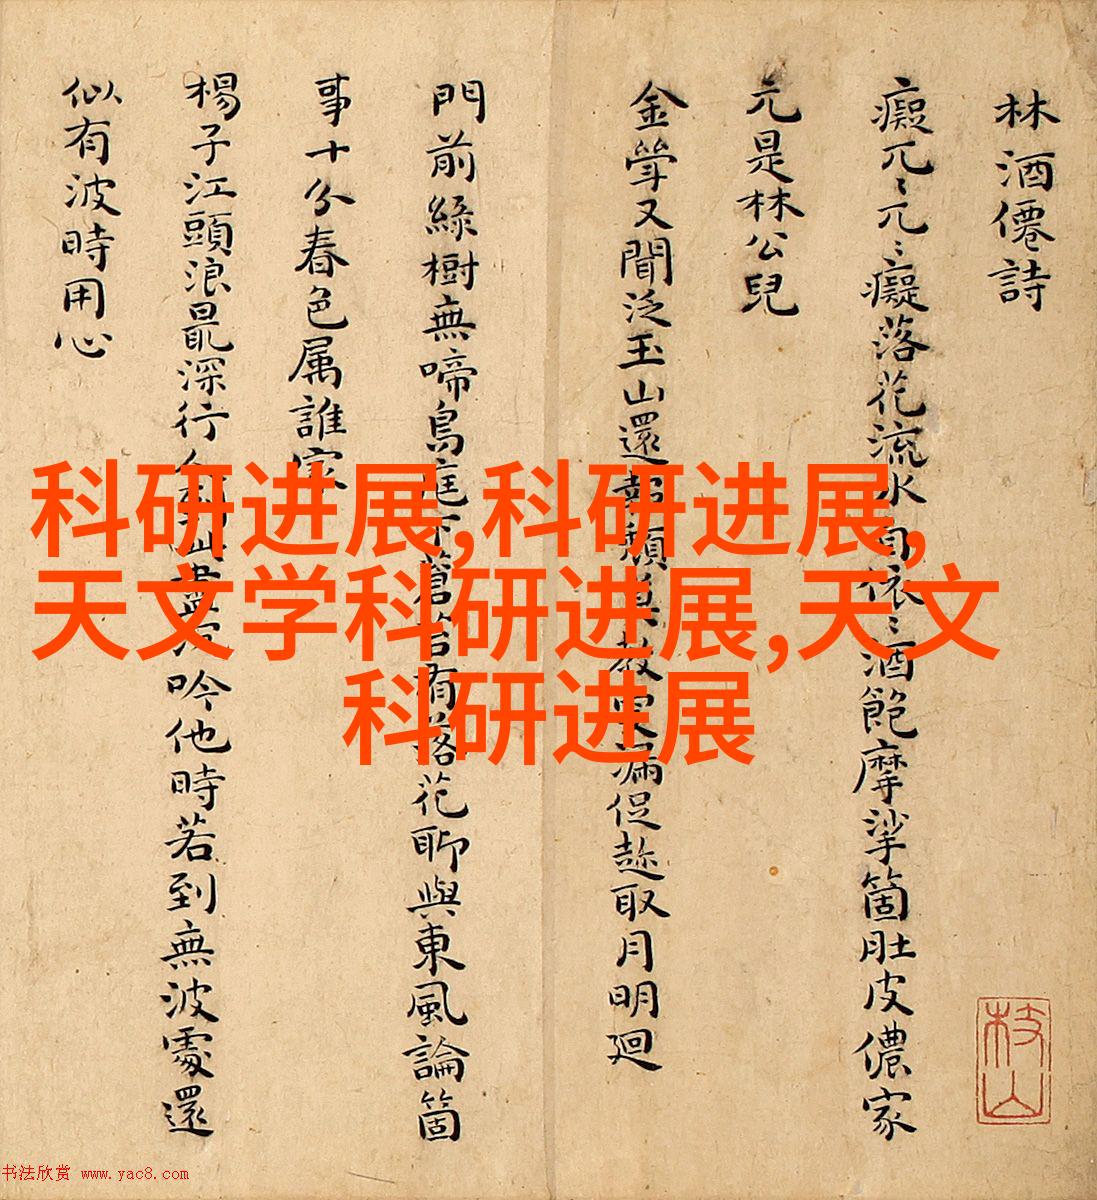 林酒僊詩
癡兀〻兀〻癡落花流水自依〻酒飽摩挲箇肚皮儂家
元是林公兒
金斝又聞泛玉山還頹莫教更漏促趂取月明廻
門前綠樹無啼鳥庭下蒼苔有落花聊與東風論箇
事十分春色属誰家
楊子江頭浪最深行人到此盡沉吟他時若到無波處還
似有波時用心
枝山
科研进展,科研进展,
天文学科研进展,天文
科研进展
书法欣赏 www.yac8.com